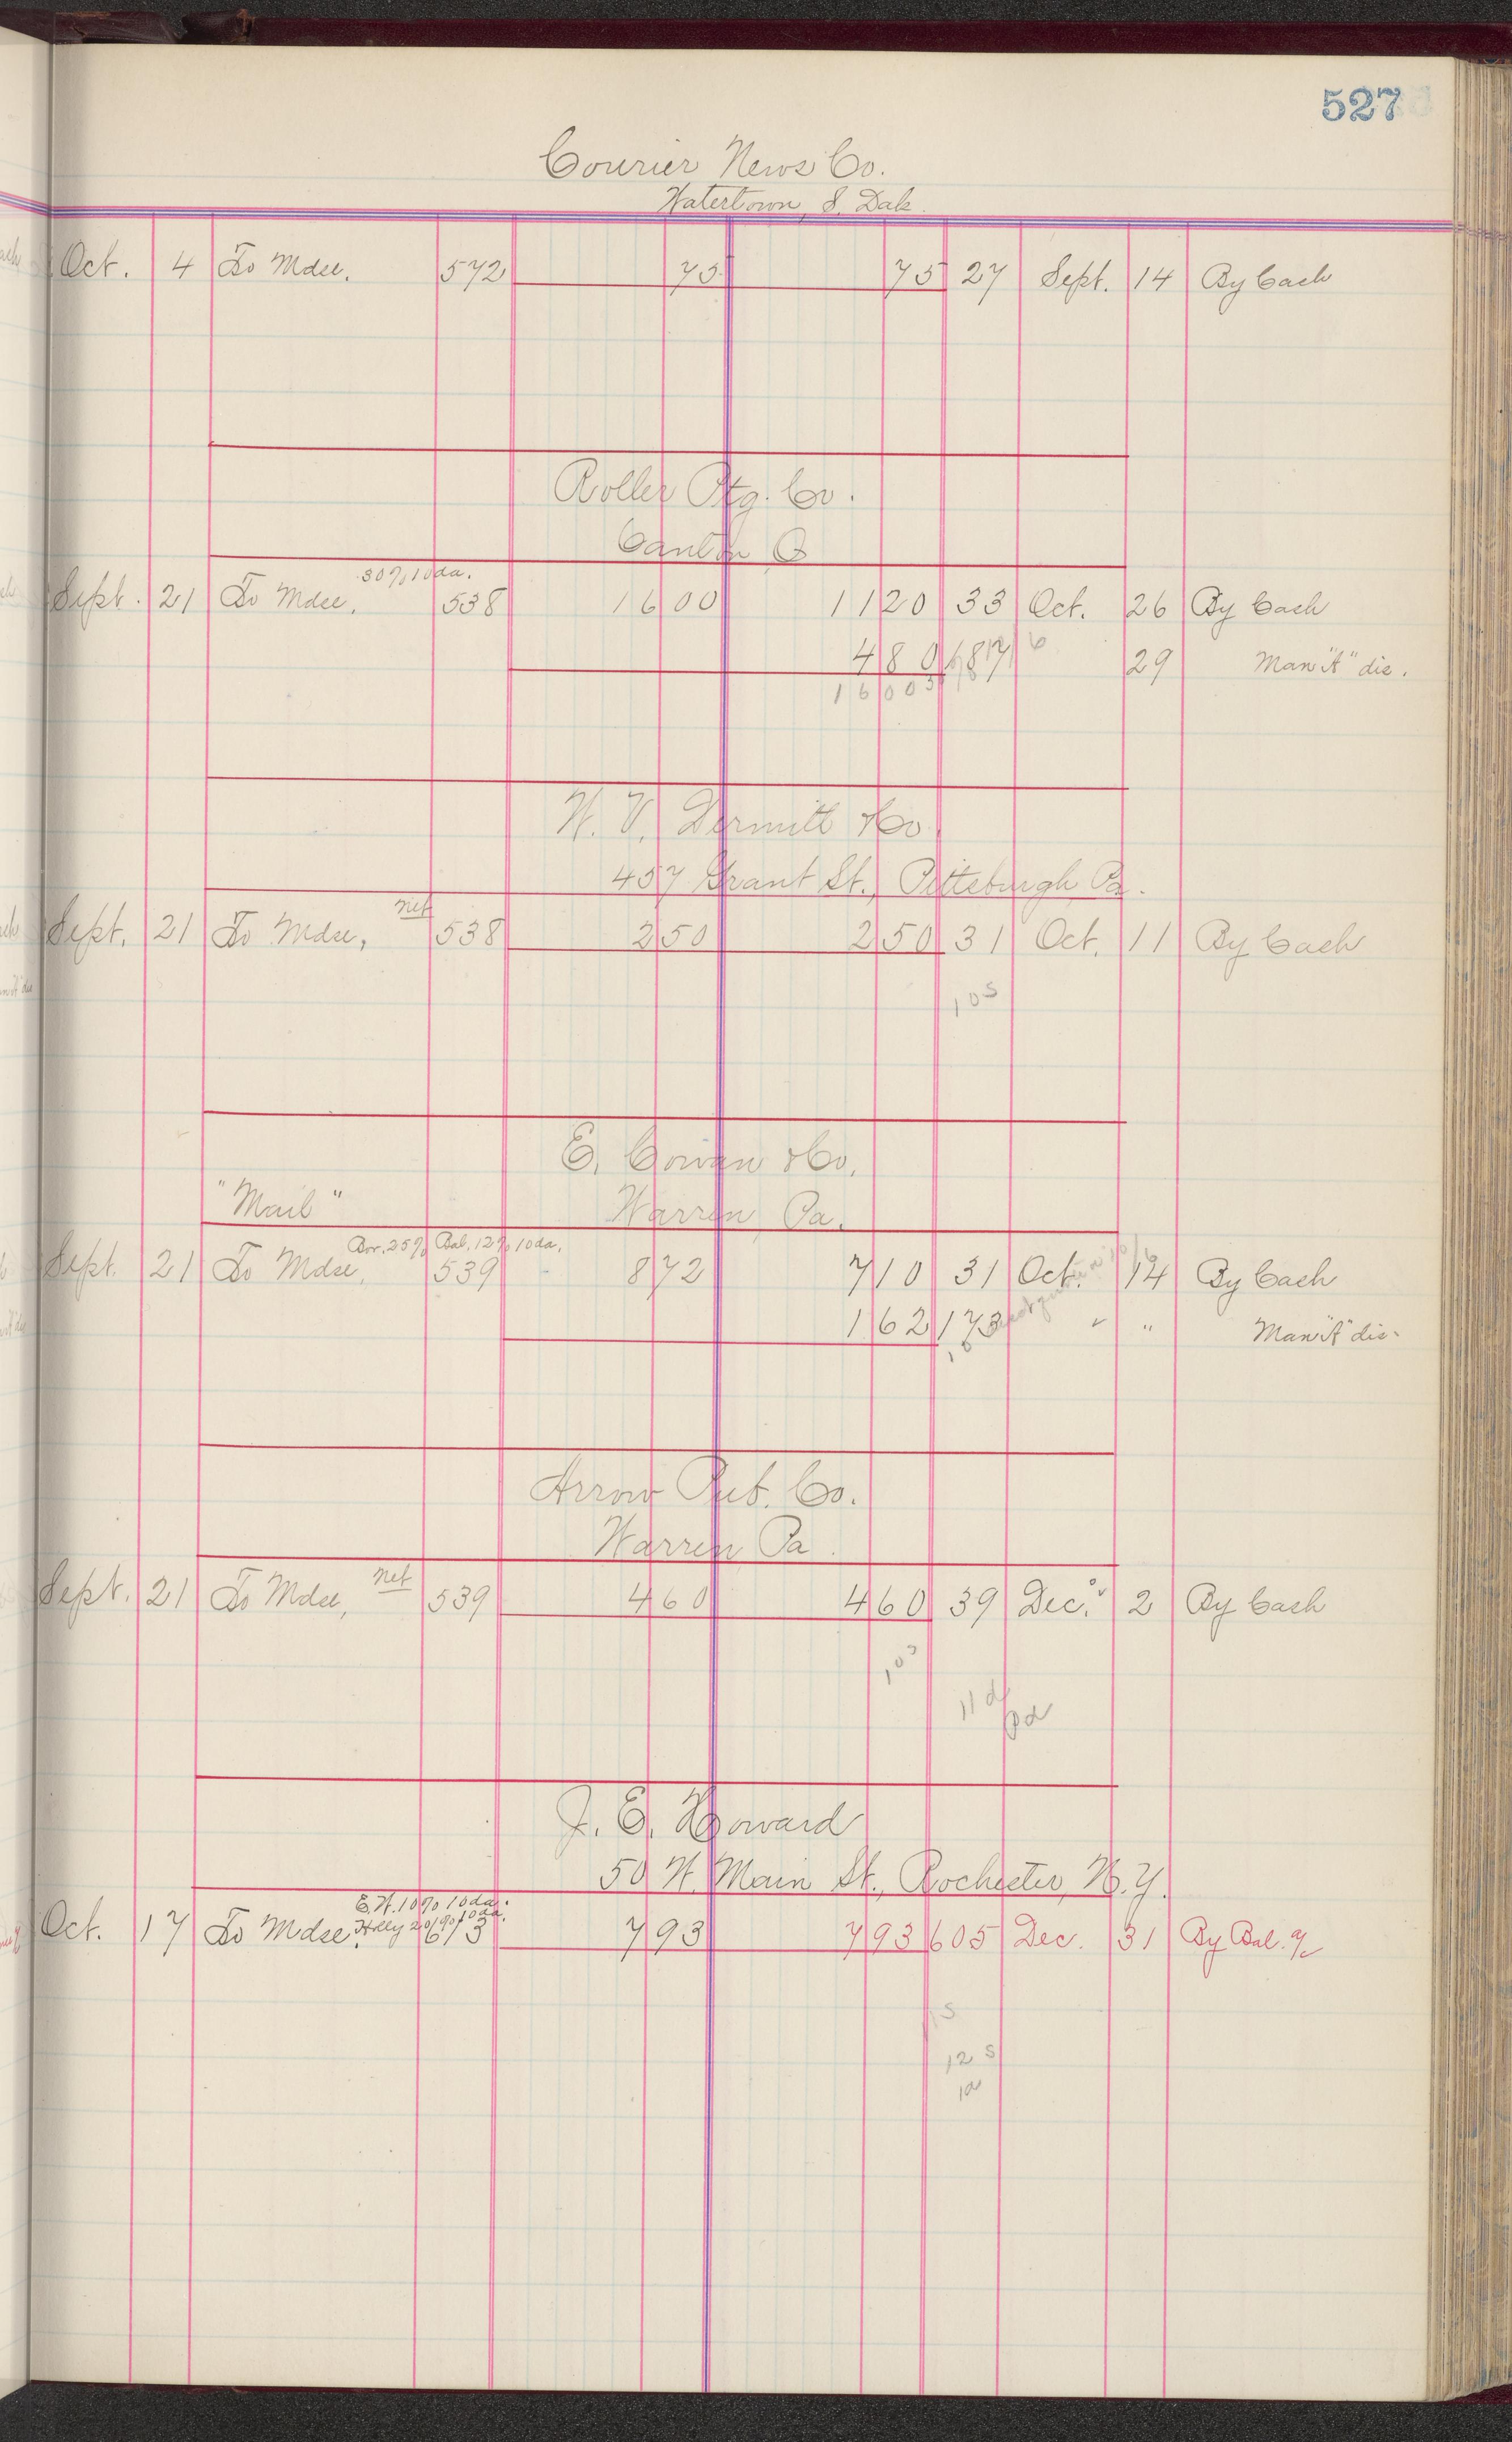 527
Courier News Co.
Watertown, S. Dak.
Oct. 4 To Mdse. 572 75 75 27 Sept. 14 By Cash
Roller Ptg. Co.
Canton, O
30% 10 da.
Sept. 21 To Mdse. 538 16 00 11 20 33 Oct. 26 By Cash
4 80 187 29 Man "A" dis.
16 00
W. V. Dermitt & Co.
457 Grant St., Pittsburgh, Pa.
net
Sept. 21 To Mdse, 538 2 50 2 50 31 Oct. 11 By Cash
10 s
E. Cowan & Co.
"Mail" Warren, Pa.
Bor. 25% Bal. 12% 10 da.
Sept. 21 To Mdse, 539 8 72 7 10 31 Oct. 14 By Cash
1 62 173 " " Man "A" dis.
Arrow Pub. Co.
Warren, Pa.
net
Sept. 21 To Mdse, 539 4 60 4 60 39 Dec. 2 By Cash
10 s
11 d
J. E. Howard
50 W. Main St., Rochester, N.Y.
E.W. 10% 10 da.
Holly 20% 10 da.
Oct. 17 To Mdse. 613 7 93 7 93 605 Dec. 31 By Bal. a/c
12 s